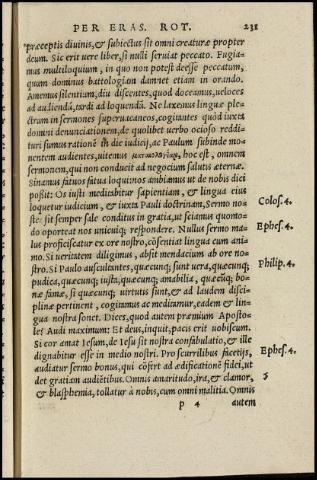 PER ERAS. ROT. 231
præceptis diuinis, & subiectus sit omni creaturæ propter
deum. Sic erit uere liber, si nulli seruiat peccato. Fugia-
mus multiloquium, in quo non potest deesse peccatum,
quam dominus battologian damnet etiam in orando.
Amemus silentium, diu discentes, quod doceamus, ueloces
ad audiendū, tardi ad loquendū. Ne laxemus linguæ ple-
ctrum in sermones superuacaneos, cogitantes quòd iuxta
domini denunciationem, de quolibet uerbo ocioso reddi-
turi sumus rationē in die iudicij, ac Paulum subinde mo-
nentem audientes, uitemus hoc est, omnem
sermonem, qui non conducit ad negocium salutis æternæ.
Sinamus fatuos fatua loqui: nos ambiamus ut de nobis dici
possit: Os iusti meditabitur sapientiam, & lingua eius
loquetur iudicium, & iuxta Pauli doctrinam, Sermo no-
ster sit semper sale conditus in gratia, ut sciamus quomo-
do oporteat nos unicuiq; respondere. Nullus sermo ma-
lus proficiscatur ex ore nostro, cōsentiat lingua cum ani-
mo. Si ueritatem diligimus, absit mendacium ab ore no-
stro. Si Paulo auscultantes, quæcunq; sunt uera, quæcunq;
pudica, quæcunq; iusta, quæcunq; amabilia, quæcūq; bo-
næ famæ, si quæcunq; uirtutis sunt, & ad laudem disci-
plinæ pertinent, cogitamus ac meditamur, eadem & lin-
gua nostra sonet. Dices, quod autem præmium Aposto-
le? Audi maximum: Et deus, inquit, pacis erit uobiscum.
Si cor amat Iesum, de Iesu sit nostra confabulatio, & ille
dignabitur esse in medio nostri. Pro scurrilibus facetijs,
audiatur sermo bonus, qui cōfert ad ædificationē fidei, ut
det gratiam audiētibus. Omnis amaritudo, ira, & clamor,
& blasphemia, tollatur à nobis, cum omni malitia. Omnis
p 4 autem
Colos. 4.
Ephes. 4.
Philip. 4.
Ephes. 4.
5